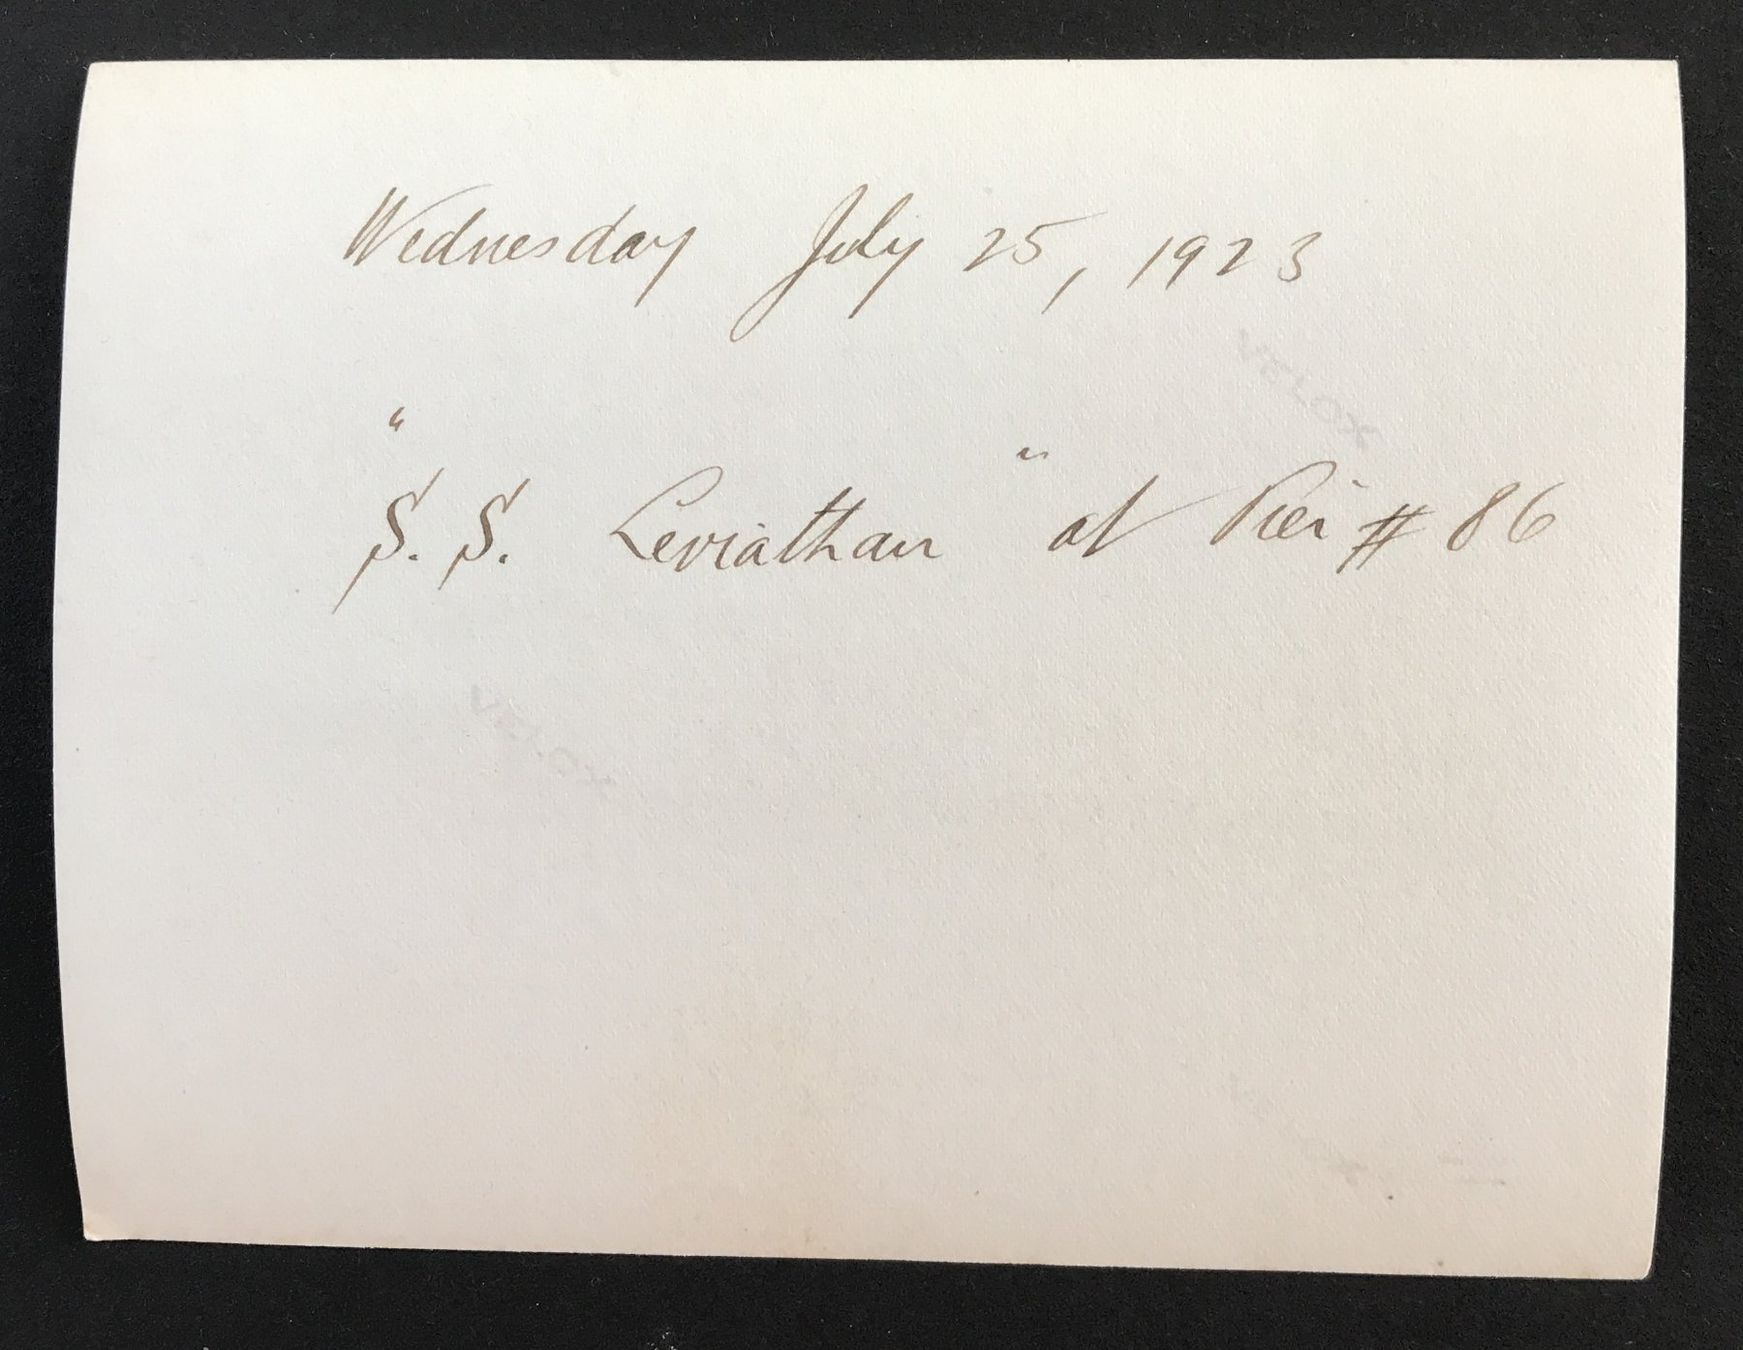 Wednesday July 25, 1923
VELOX
"S.S. Leviathan" at Pier # 86
VELOX